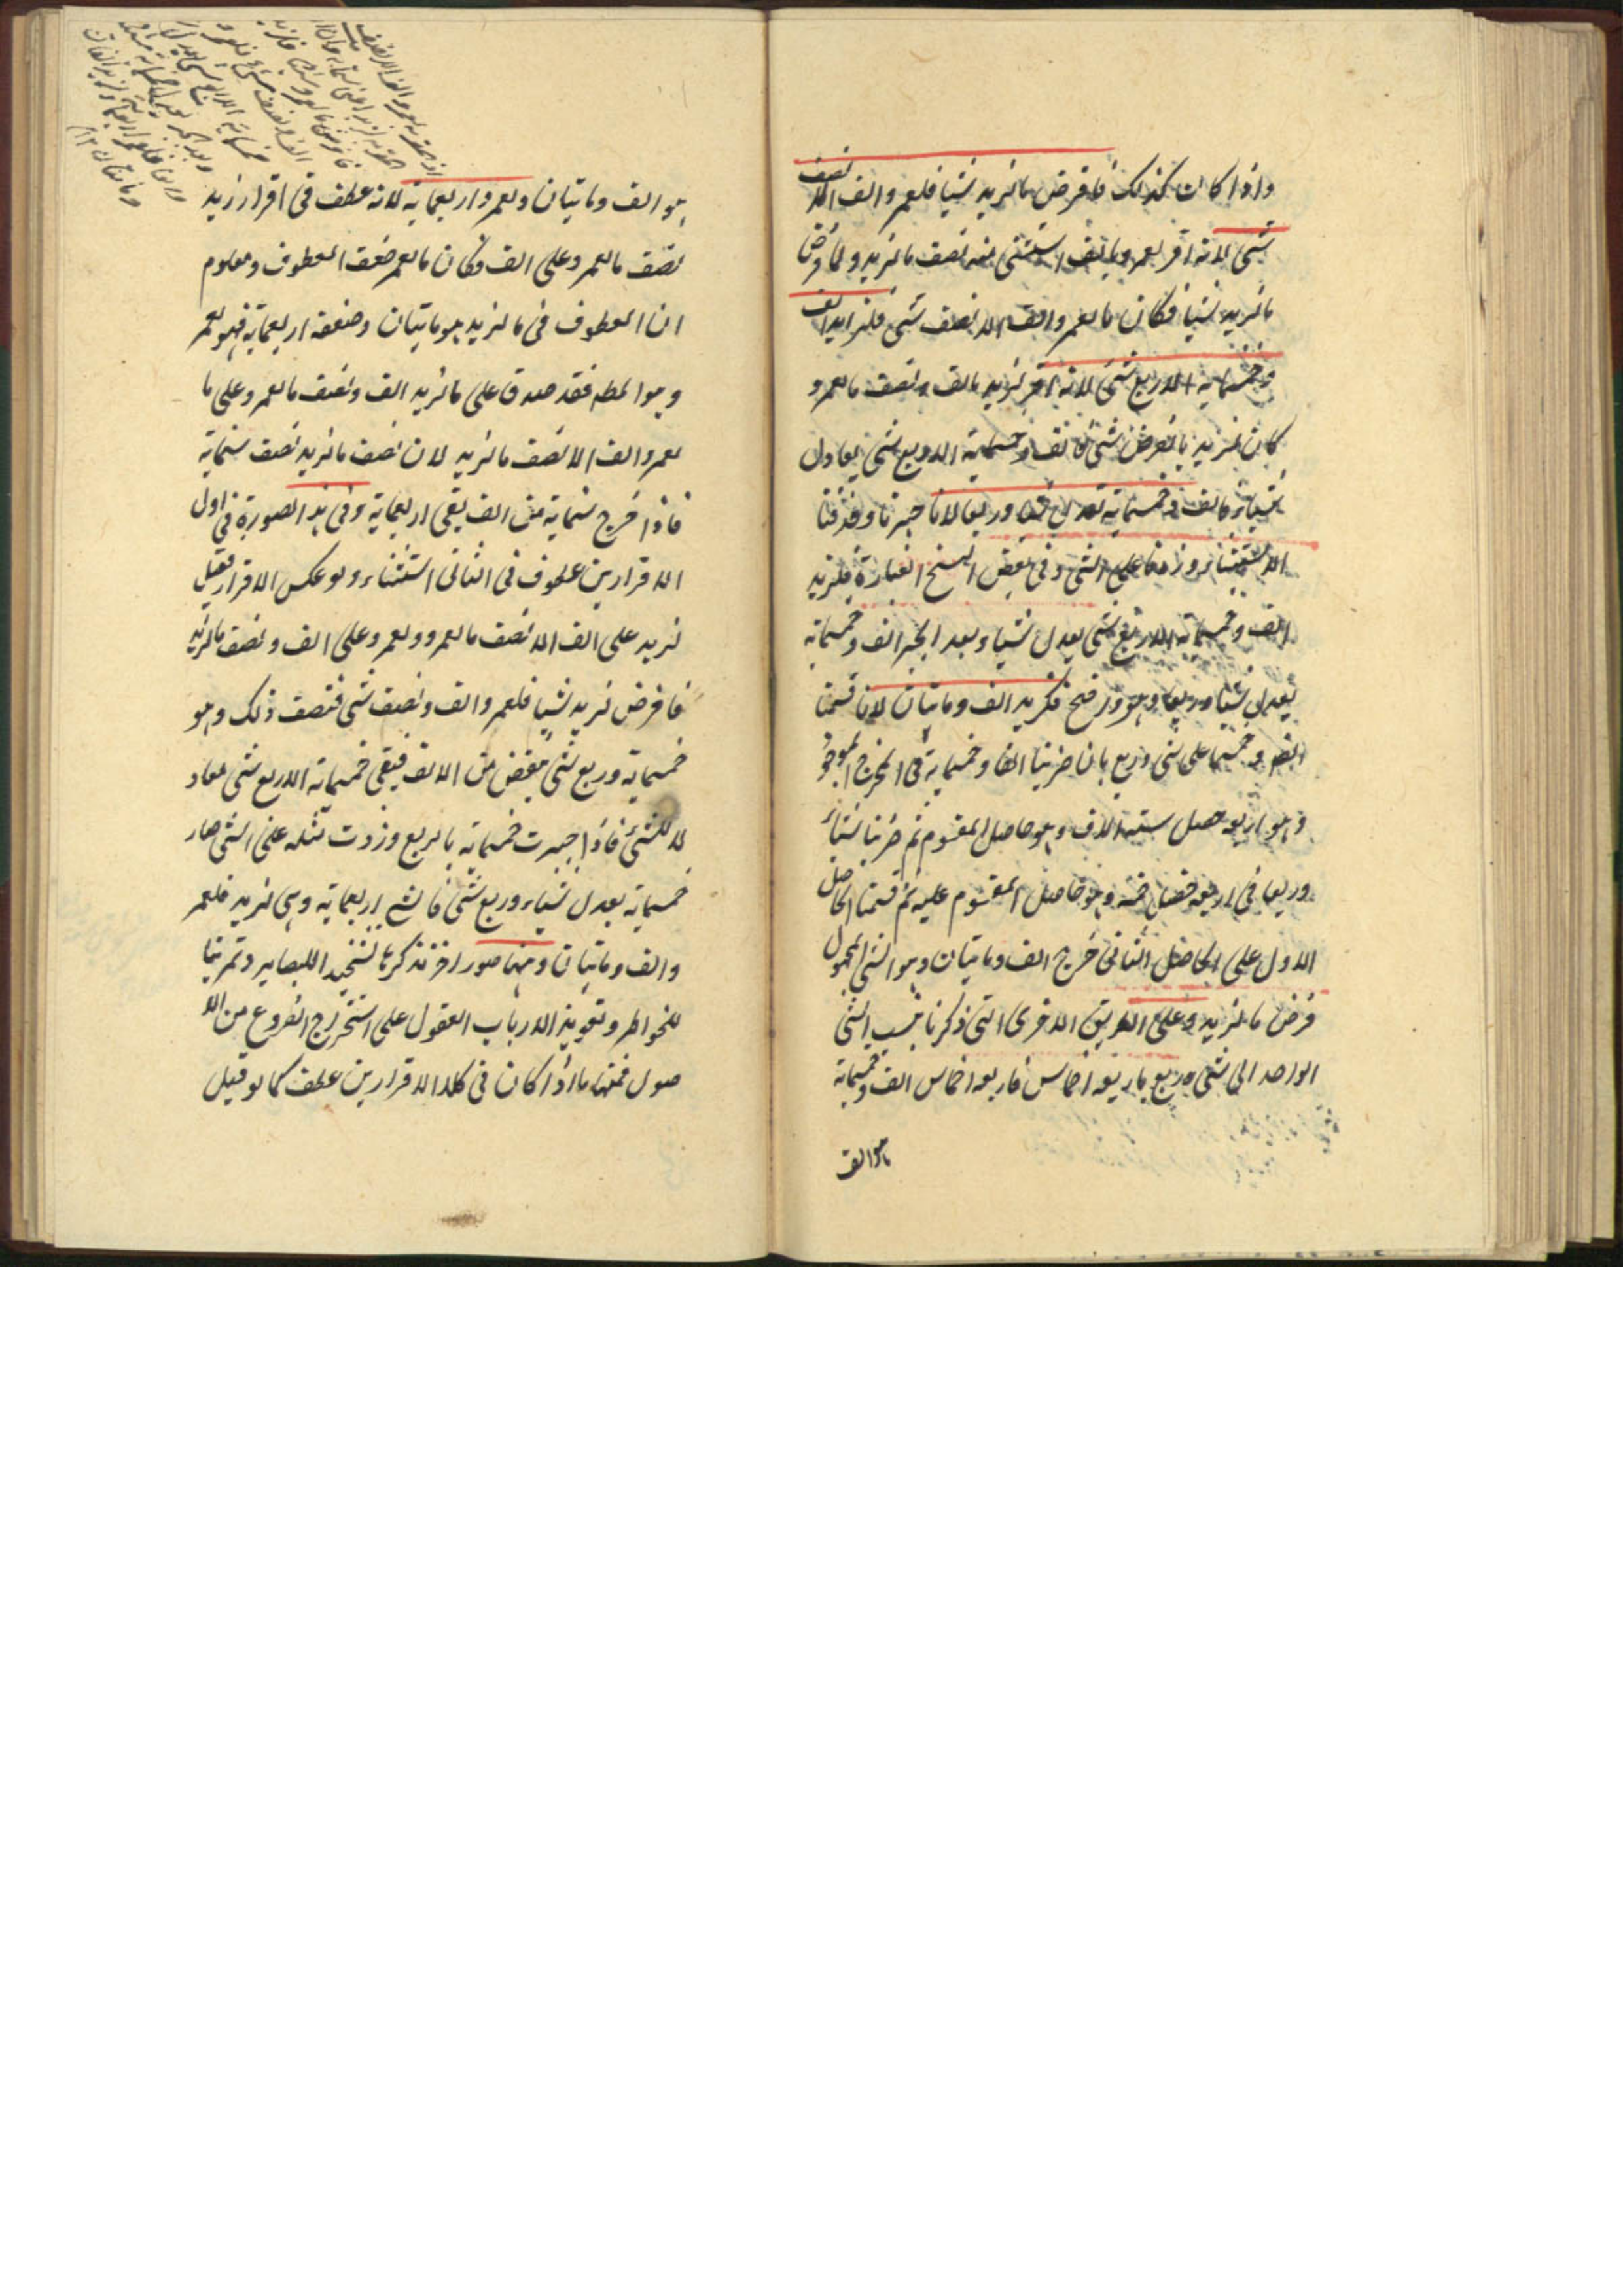 واذا كان كذلك فافرض ما لزيد شيئا فلعمرو الف الا نصف
شئ لانه اقر لعمرو بالف استثنى منه نصف ما لزيد ولما فرض
ما لزيد شيئا فكان ما لعمرو الف الا نصف شئ فلزيد الف
وخمسمایة الا ربع شئ لانه اقر لزيد بالف ونصف ما لعمرو و
كان لزيد بالفرض شئ فالف وخمسماية الا ربع شئ يعادل
شيئا فالف وخمسماية تعدل شيئا وربعا لانا جبرنا وحذفنا
الاستثناء وزدنا على الشئ وفى بعض النسخ العبارة فلزيد
الف وخمسماية الا ربع شئ يعدل شيئا وبعد الجبر الف وخمسماية
يعدل شيئا وربعا وهو وزضح فلزيد الف وماتيان لانا قسمنا
الف وخمسمايا على شئ وربع بان ضربنا الفا وخمسماية فى المخرج الموجود
وهو اربعه حصل ستة الاف وهو حاصل المقسوم ثم ضربنا شيئا
وربعا فى اربعة فصار خمسة وهو حاصل المقسوم عليه ثم قسمنا الحاصل
الاول على الحاصل الثانى خرج الف وماتيان وهو الشئ المجهول
فرض ما لزيد وعلى الطريق الاخرى التى ذكرنا نسب الشئ
الواحد الى شئ وربع باربعة اخماس فاربعه اخماس الف وخمسماية
هو الف
هو الف وماتيان ولعمرو اربعماية لانه عطف فى اقرار زيد
نصف ما لعمرو على الف فكان ما لعمرو ضعف المعطوف ومعلوم
ان المعطوف فى ما لزيد هو ماتيان وضعفه اربعماية فهو لعمر
وهو المط فقد صدق على ما لزيد الف ونصف ما لعمرو على ما
لعمرو الف الا نصف ما لزيد لان نصف ما لزيد نصف ستماية
فاذا خرج ستماية من الف يبقى اربعماية وفى هذه الصورة فى اول
الاقرارين عطوف فى الثانى استثناء ولو عكس الاقرار فقيل
لزيد على الف الا نصف ما لعمرو ولعمرو على الف ونصف ما لزيد
فافرض لزيد شيئا فلعمرو الف ونصف شئ فنصف ذلك وهو
خمسماية وربع شئ ينقص من الالف فيبقى خمسماية الا ربع شئ معاد
لا للشئ فاذا جبرت خمسماية بالربع وزدت مثله على الشئ صار
خمسماية يعدل شياء وربع شئ فالشئ اربعماية وهى لزيد فلعمر
والف وماتيان ومنها صور اخر نذكرها تشحيذا للبصاير وتمرينا
للخواطر وتقوية لارباب العقول على استخراج الفروع من الا
صول فمنها ما اذا كان فى كلا الاقرارين عطف كما لو قيل